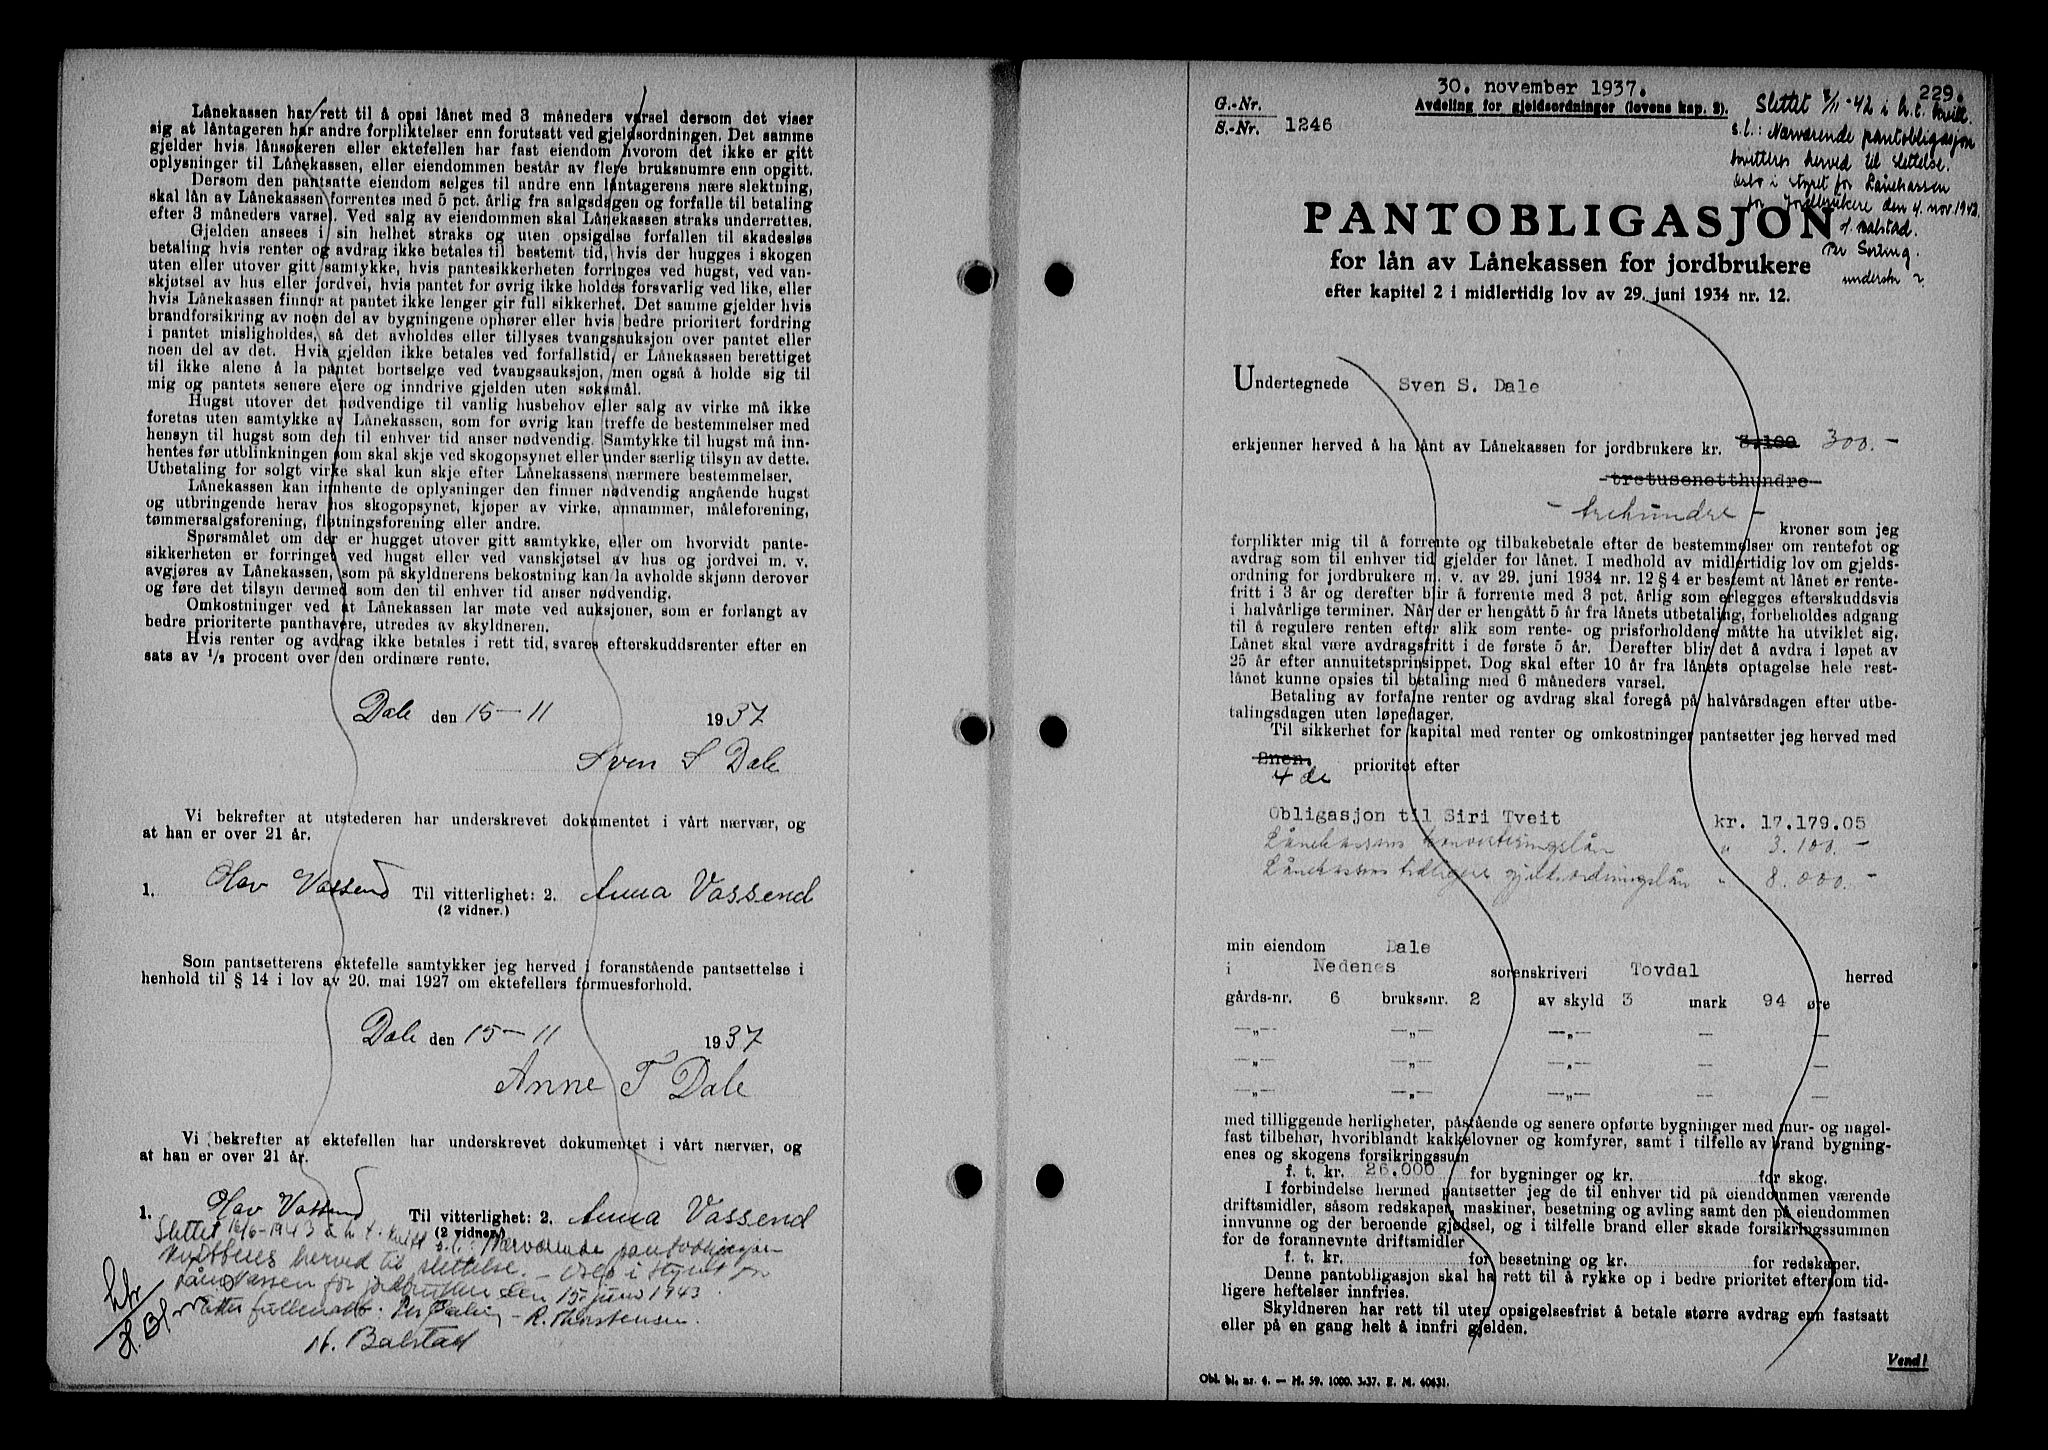 Lånekassen har rett til å opsi lånet med 3 måneders varsel dersom det viser
sig at låntageren har andre forpliktelser enn forutsatt ved gjeldsordningen. Det samme
gjelder hvis lånsøkeren eller ektefellen har fast eiendom hvorom det ikke er gitt
oplysninger til Lånekassen, eller eiendommen består av flere bruksnumre enn opgitt.
Dersom den pantsatte eiendom selges til andre enn låntagerens nære slektning,
skal lån av Lånekassen forrentes med 5 pct. årlig fra salgsdagen og forfalle til betaling
efter 3 måneders varsel. Ved salg av eiendommen skal Lånekassen straks underrettes.
Gjelden ansees i sin helhet straks og uten opsigelse forfallen til skadesløs
betaling hvis renter og avdrag ikke betales til bestemt tid, hvis der hugges i skogen
uten eller utover gitt samtykke, hvis pantesikkerheten forringes ved hugst, ved van-
skjøtsel av hus eller jordvei, hvis pantet for øvrig ikke holdes forsvarlig ved like, eller
hvis Lånekassen finner at pantet ikke lenger gir full sikkerhet. Det samme gjelder hvis
brandforsikring av noen del av bygningene ophører eller hvis bedre prioritert fordring
i pantet misligholdes, så det avholdes eller tillyses tvangsauksjon over pantet eller
noen del av det. Hvis gjelden ikke betales ved forfallstid, er Lånekassen berettiget
til ikke alene å la pantet bortselge ved tvangsauksjon, men også å holde sig til
mig og pantets senere eiere og inndrive gjelden uten søksmål.
Hugst utover det nødvendige til vanlig husbehov eller salg av virke må ikke
foretas uten samtykke av Lånekassen, som for øvrig kan treffe de bestemmelser med
hensyn til hugst som den til enhver tid anser nødvendig. Samtykke til hugst må inn-
hentes før utblinkningen som skal skje ved skogopsynet eller under særlig tilsyn av dette.
Utbetaling for solgt virke skal kun skje efter Lånekassens nærmere bestemmelser.
Lånekassen kan innhente de oplysninger den finner nødvendig angående hugst
og utbringende herav hos skogopsynet, kjøper av virke, annammer, måleforening,
tømmersalgsforening, fløtningsforening eller andre.
Spørsmålet om der er hugget utover gitt samtykke, eller om hvorvidt pante-
sikkerheten er forringet ved hugst eller ved vanskjøtsel av hus og jordvei m. v.
avgjøres av Lånekassen, som på skyldnerens bekostning kan la avholde skjønn derover
og føre det tilsyn dermed som den til enhver tid anser nødvendig.
Omkostninger ved at Lånekassen lar møte ved auksjoner, som er forlangt av
bedre prioriterte panthavere, utredes av skyldneren.
Hvis renter og avdrag ikke betales i rett tid, svares efterskuddsrenter efter en
sats av 1/2 procent over den ordinære rente.
Dale den 15-11 1937
Sven S Dale
Vi bekrefter at utstederen har underskrevet dokumentet i vårt nærvær, og
at han er over 21 år.
1. Olav Vassend Til vitterlighet: 2. Anna Vassend
(2 vidner.)
Som pantsetterens ektefelle samtykker jeg herved i foranstående pantsettelse i
henhold til § 14 i lov av 20. mai 1927 om ektefellers formuesforhold.
Dale den 15-11 1937
Anne T Dale
Vi bekrefter at ektefellen har underskrevet dokumentet i vårt nærvær, og
at han er over 21 år.
1. Olav Vassend Til vitterlighet: 2. Anna Vassend
(2 vidner.)
Slettet 16/6-1943 i h. t. kvitt. s.l.: Nærværende pantobligasjon
kvitteres herved til slettelse. - Oslo i styret for
Lånekassen for jordbrukere den 15. juni 1943.
Etter fullmakt: Per Sorling - R. Thorstensen.
N. Balstad
30. november 1937.
229.
G.-Nr.
S.-Nr. 1246
Avdeling for gjeldsordninger (lovens kap. 2).
Slettet /11-42 i h. t. kvitt.
s.l.: Nærværende pantobligasjon
kvitteres herved til slettelse.
Oslo i styret for Lånekassen
for jordbrukere den 4. nov. 1942.
N. Balstad.
Per Sorling.
underskr ?
PANTOBLIGASJON
for lån av Lånekassen for jordbrukere
efter kapitel 2 i midlertidig lov av 29. juni 1934 nr. 12.
Undertegnede Sven S. Dale
erkjenner herved å ha lånt av Lånekassen for jordbrukere kr. 3.100 300.-
tretusenetthundre
- trehundre -
kroner som jeg
forplikter mig til å forrente og tilbakebetale efter de bestemmelser om rentefot og
avdrag som til enhver tid gjelder for lånet. I medhold av midlertidig lov om gjelds-
ordning for jordbrukere m. v. av 29. juni 1934 nr. 12 § 4 er bestemt at lånet er rente-
fritt i 3 år og derefter blir å forrente med 3 pct. årlig som erlegges efterskuddsvis
i halvårlige terminer. Når der er hengått 5 år fra lånets utbetaling, forbeholdes adgang
til å regulere renten efter slik som rente- og prisforholdene måtte ha utviklet sig.
Lånet skal være avdragsfritt i de første 5 år. Derefter blir det å avdra i løpet av
25 år efter annuitetsprinsippet. Dog skal efter 10 år fra lånets optagelse hele rest-
lånet kunne opsies til betaling med 6 måneders varsel.
Betaling av forfalne renter og avdrag skal foregå på halvårsdagen efter utbe-
talingsdagen uten løpedager.
Til sikkerhet for kapital med renter og omkostninger pantsetter jeg herved med
2nen.
4 de prioritet efter
Obligasjon til Siri Tveit kr. 17.179.05
Lånekassens konverteringslån " 3.100.-
Lånekassens tidligere gjeldsordningslån " 8.000.-
min eiendom Dale
i Nedenes sorenskriveri Tovdal herred
gårds-nr. 6 bruks-nr. 2 av skyld 3 mark 94 øre
—„— —„— —„— — —
—„— —„— —„— — —
—„— —„— —„— — —
med tilliggende herligheter, påstående og senere opførte bygninger med mur- og nagel-
fast tilbehør, hvoriblandt kakkelovner og komfyrer, samt i tilfelle av brand bygning-
enes og skogens forsikringssum
f. t. kr. 26.000 for bygninger og kr. for skog.
I forbindelse hermed pantsetter jeg de til enhver tid på eiendommen værende
driftsmidler, såsom redskaper, maskiner, besetning og avling samt den på eiendommen
innvunne og der beroende gjødsel, og i tilfelle brand eller skade forsikringssummen
for de forannevnte driftsmidler
f. t. kr. for besetning og kr. for redskaper.
Denne pantobligasjon skal ha rett til å rykke op i bedre prioritet eftersom tid-
ligere heftelser innfries.
Skyldneren har rett til uten opsigelsesfrist å betale større avdrag enn fastsatt
eller på en gang helt å innfri gjelden.
Vend!
Obl. bl. nr. 4. — H. 59. 1000. 3-37. E. M. 40631.